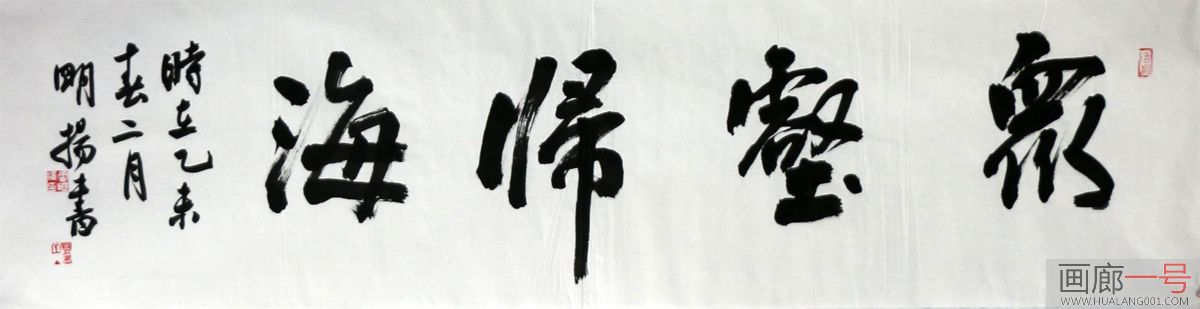 眾壑歸海
時在乙未
春二月
明揚書
画廊一号
WWW.HUALANG001.COM